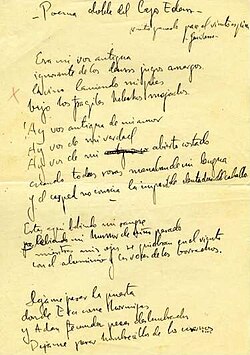 Poema doble del Lago Edem
nuestro ganado pace el viento espira
Garcilaso
Era mi voz antigua
ignorante de los densos jugos amargos
lamiendo mis pies
bajo los frágiles helechos mojados.
¡Ay voz antigua de mi amor
Ay voz de mi verdad
Ay voz de mi abierto costado
cuando todas las rosas manaban de mi lengua
y el césped no conocía la impasible dentadura del caballo
Estás aquí bebiendo mi sangre
bebiendo mi humor de niño pesado
mientras mis ojos se quiebran en el viento
con el aluminio y las voces de los borrachos.
Déjame pasar la puerta
donde Eva come hormigas
y Adán fecunda peces deslumbrados
Déjame pasar hombrecillo de los cuernos